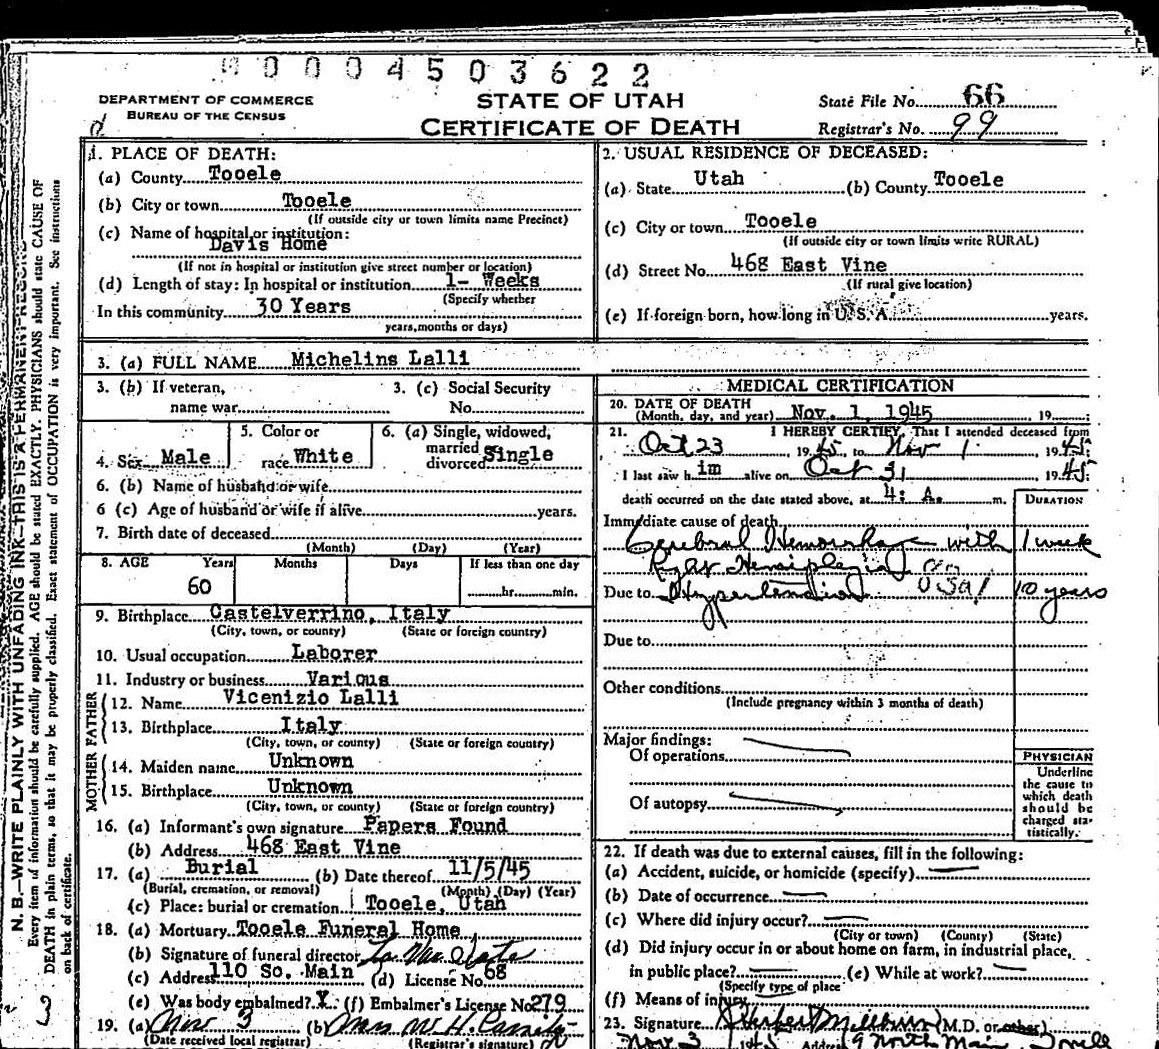 0004503622
DEPARTMENT OF COMMERCE
BUREAU OF THE CENSUS
STATE OF UTAH
CERTIFICATE OF DEATH
State File No. 66
Registrar's No. 99
N. B.—WRITE PLAINLY WITH UNFADING INK—THIS IS A PERMANENT RECORD
Every item of information should be carefully supplied. AGE should be stated EXACTLY. PHYSICIANS should state CAUSE OF
DEATH in plain terms, so that it may be properly classified. Exact statement of OCCUPATION is very important. See instructions
on back of certificate.
1. PLACE OF DEATH:
(a) County Tooele
(b) City or town Tooele
(If outside city or town limits name Precinct)
(c) Name of hospital or institution:
Davis Home
(If not in hospital or institution give street number or location)
(d) Length of stay: In hospital or institution 1- Weeks
(Specify whether
In this community 30 Years
years, months or days)
2. USUAL RESIDENCE OF DECEASED:
(a) State Utah (b) County Tooele
(c) City or town Tooele
(If outside city or town limits write RURAL)
(d) Street No. 468 East Vine
(If rural give location)
(e) If foreign born, how long in U. S. A. years.
3. (a) FULL NAME Michelins Lalli
3. (b) If veteran, 3. (c) Social Security
name war No.
4. Sex Male
5. Color or
race White
6. (a) Single, widowed,
married
divorced Single
6. (b) Name of husband or wife
6 (c) Age of husband or wife if alive years.
7. Birth date of deceased
(Month) (Day) (Year)
8. AGE Years Months Days If less than one day
60 hr. min.
9. Birthplace Castelverrino, Italy
(City, town, or county) (State or foreign country)
10. Usual occupation Laborer
11. Industry or business Various
FATHER
12. Name Vicenizio Lalli
13. Birthplace Italy
(City, town, or county) (State or foreign country)
MOTHER
14. Maiden name Unknown
15. Birthplace Unknown
(City, town, or county) (State or foreign country)
16. (a) Informant's own signature Papers Found
(b) Address 468 East Vine
17. (a) Burial (b) Date thereof 11/5/45
(Burial, cremation, or removal) (Month) (Day) (Year)
(c) Place: burial or cremation Tooele, Utah
18. (a) Mortuary Tooele Funeral Home
(b) Signature of funeral director
(c) Address 110 So. Main (d) License No. 68
(e) Was body embalmed? X (f) Embalmer's License No. 279
19. (a) Nov 3 (b) Mrs. W. H.
(Date received local registrar) (Registrar's signature)
MEDICAL CERTIFICATION
20. DATE OF DEATH
(Month, day, and year) Nov. 1 1945 19
21. I HEREBY CERTIFY, That I attended deceased from
Oct 23 1945, to Nov 1, 1945
I last saw h im alive on Oct 31 1945
death occurred on the date stated above, at 4: A. m.
DURATION
Immediate cause of death
Cerebral Hemorrhage with 1 week
Right Hemiplegia
Due to Hypertension 10 years
Due to
Other conditions
(Include pregnancy within 3 months of death)
Major findings:
Of operations
Of autopsy
PHYSICIAN
Underline
the cause to
which death
should be
charged sta-
tistically.
22. If death was due to external causes, fill in the following:
(a) Accident, suicide, or homicide (specify)
(b) Date of occurrence
(c) Where did injury occur?
(City or town) (County) (State)
(d) Did injury occur in or about home on farm, in industrial place,
in public place? (e) While at work?
(Specify type of place
(f) Means of injury
23. Signature (M.D. or other)
Nov 3 1945 Address 9 North Main